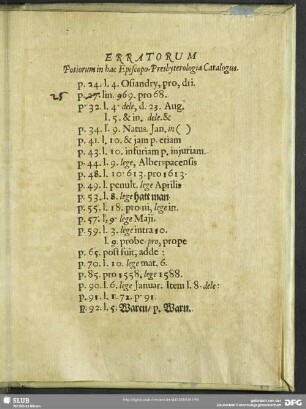 ERRATORUM
Potiorum in hac Episcopo-Presbyterologia Catalogus.
p. 24. l. 4. Osiandry, pro, dri.
25 p. 27. lin. 969. pro 68.
p. 32. l. 4. dele, d. 23. Aug.
l. 5. & in. dele. &
p. 34. l. 9. Natus. Jan. in ( )
p. 41. l. 10. & jam p. etiam
p. 43. l. 10. infuriam p. injuriam.
p. 44. l. 9. lege, Alberspacensis
p. 48. l. 10. 613. pro 1613.
p. 49. l. penult. lege Aprilis
p. 53. l. 8. lege hatt man
p. 55. l. 18. pro ni, lege in.
p. 57. l. 9. lege Maji.
p. 59. l. 3. lege intra 10.
l. 9. probe. pro, prope
p. 65. post fuit, adde :
p. 70. l. 10. lege mat. 6.
p. 85. pro 1558, lege 1588.
p. 90. l. 6. lege Januar. Item l. 8. dele:
p. 91. l. 1. 72. p. 91.
p. 92. l. 5. Waren/ p. Warn.
SLUB
DFG